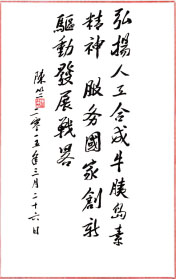 弘揚人工合成牛胰島素
精神 服务國家創新
驅動發展戰畧
陳竺
二零一五年三月二十六日